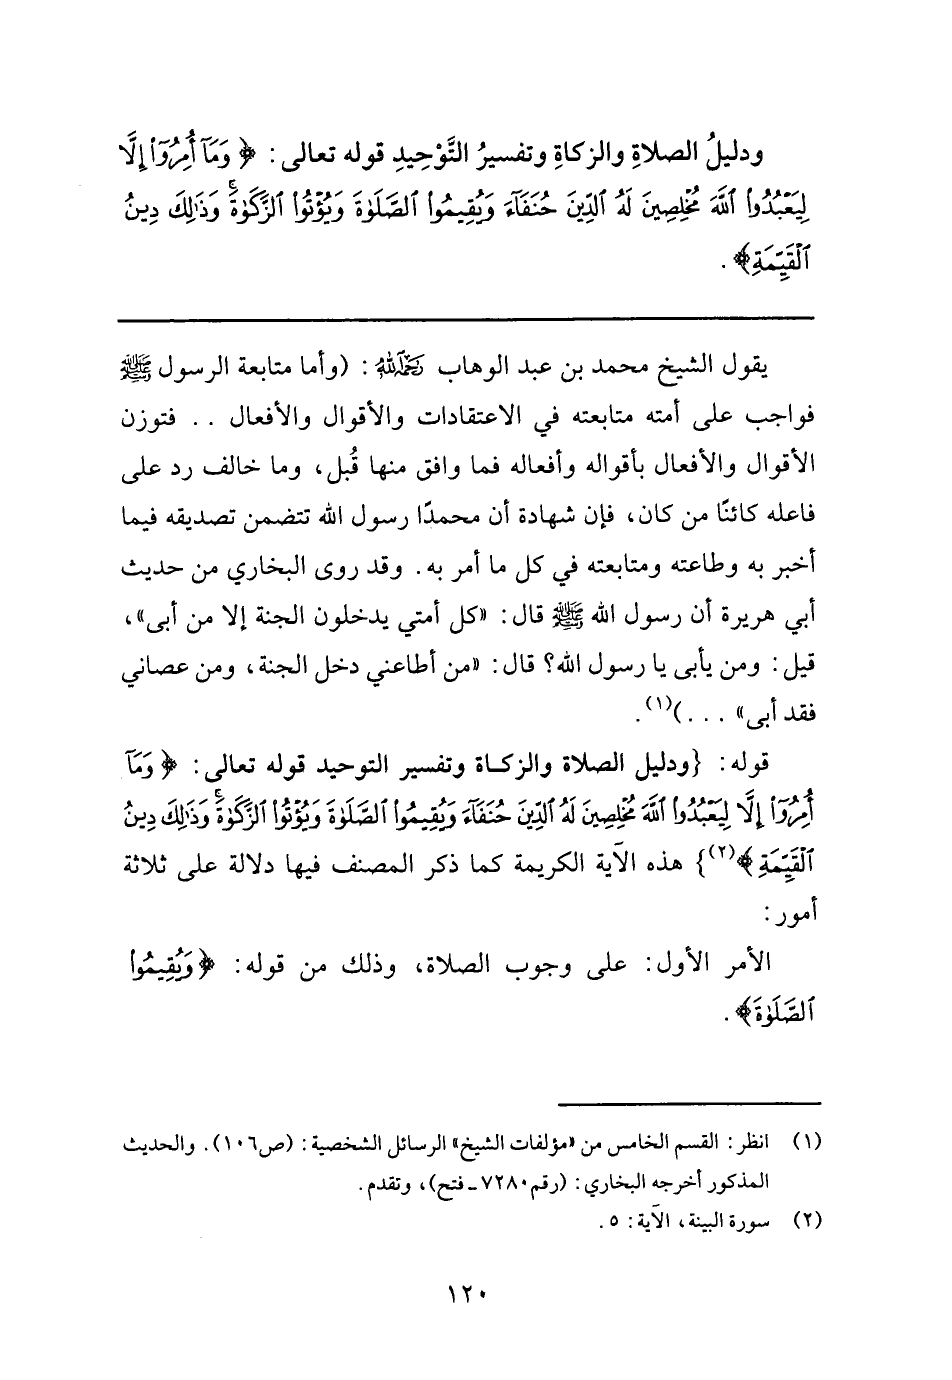 ودليلُ الصلاةِ والزكاةِ وتفسيرُ التَّوْحِيدِ قوله تعالى: ﴿وَمَآ أُمِرُوٓا۟ إِلَّا
لِيَعْبُدُوا۟ ٱللَّهَ مُخْلِصِينَ لَهُ ٱلدِّينَ حُنَفَآءَ وَيُقِيمُوا۟ ٱلصَّلَوٰةَ وَيُؤْتُوا۟ ٱلزَّكَوٰةَ ۚ وَذَٰلِكَ دِينُ
ٱلْقَيِّمَةِ﴾.
يقول الشيخ محمد بن عبد الوهاب رَحِمَهُ ٱللَّهُ: (وأما متابعة الرسول ﷺ
فواجب على أمته متابعته في الاعتقادات والأقوال والأفعال .. فتوزن
الأقوال والأفعال بأقواله وأفعاله فما وافق منها قُبل، وما خالف رد على
فاعله كائنًا من كان، فإن شهادة أن محمدًا رسول الله تتضمن تصديقه فيما
أخبر به وطاعته ومتابعته في كل ما أمر به. وقد روى البخاري من حديث
أبي هريرة أن رسول الله ﷺ قال: «كل أمتي يدخلون الجنة إلا من أبى»،
قيل: ومن يأبى يا رسول الله؟ قال: «من أطاعني دخل الجنة، ومن عصاني
فقد أبى» ...)(١).
قوله: {ودليل الصلاة والزكاة وتفسير التوحيد قوله تعالى: ﴿وَمَآ
أُمِرُوٓا۟ إِلَّا لِيَعْبُدُوا۟ ٱللَّهَ مُخْلِصِينَ لَهُ ٱلدِّينَ حُنَفَآءَ وَيُقِيمُوا۟ ٱلصَّلَوٰةَ وَيُؤْتُوا۟ ٱلزَّكَوٰةَ ۚ وَذَٰلِكَ دِينُ
ٱلْقَيِّمَةِ﴾(٢)} هذه الآية الكريمة كما ذكر المصنف فيها دلالة على ثلاثة
أمور:
الأمر الأول: على وجوب الصلاة، وذلك من قوله: ﴿وَيُقِيمُوا۟
ٱلصَّلَوٰةَ﴾.
(١) انظر: القسم الخامس من «مؤلفات الشيخ» الرسائل الشخصية: (ص١٠٦). والحديث
المذكور أخرجه البخاري: (رقم ٧٢٨٠ ـ فتح)، وتقدم.
(٢) سورة البينة، الآية: ٥.
١٢٠